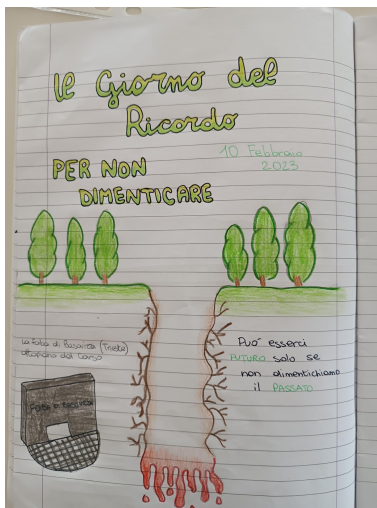 Il Giorno del
Ricordo
10 Febbraio
2023
PER NON
DIMENTICARE
La foiba di Basovizza (Trieste)
altopiano del Carso
FOIBA DI BASOVIZZA
Puo' esserci
FUTURO solo se
non dimentichiamo
il PASSATO